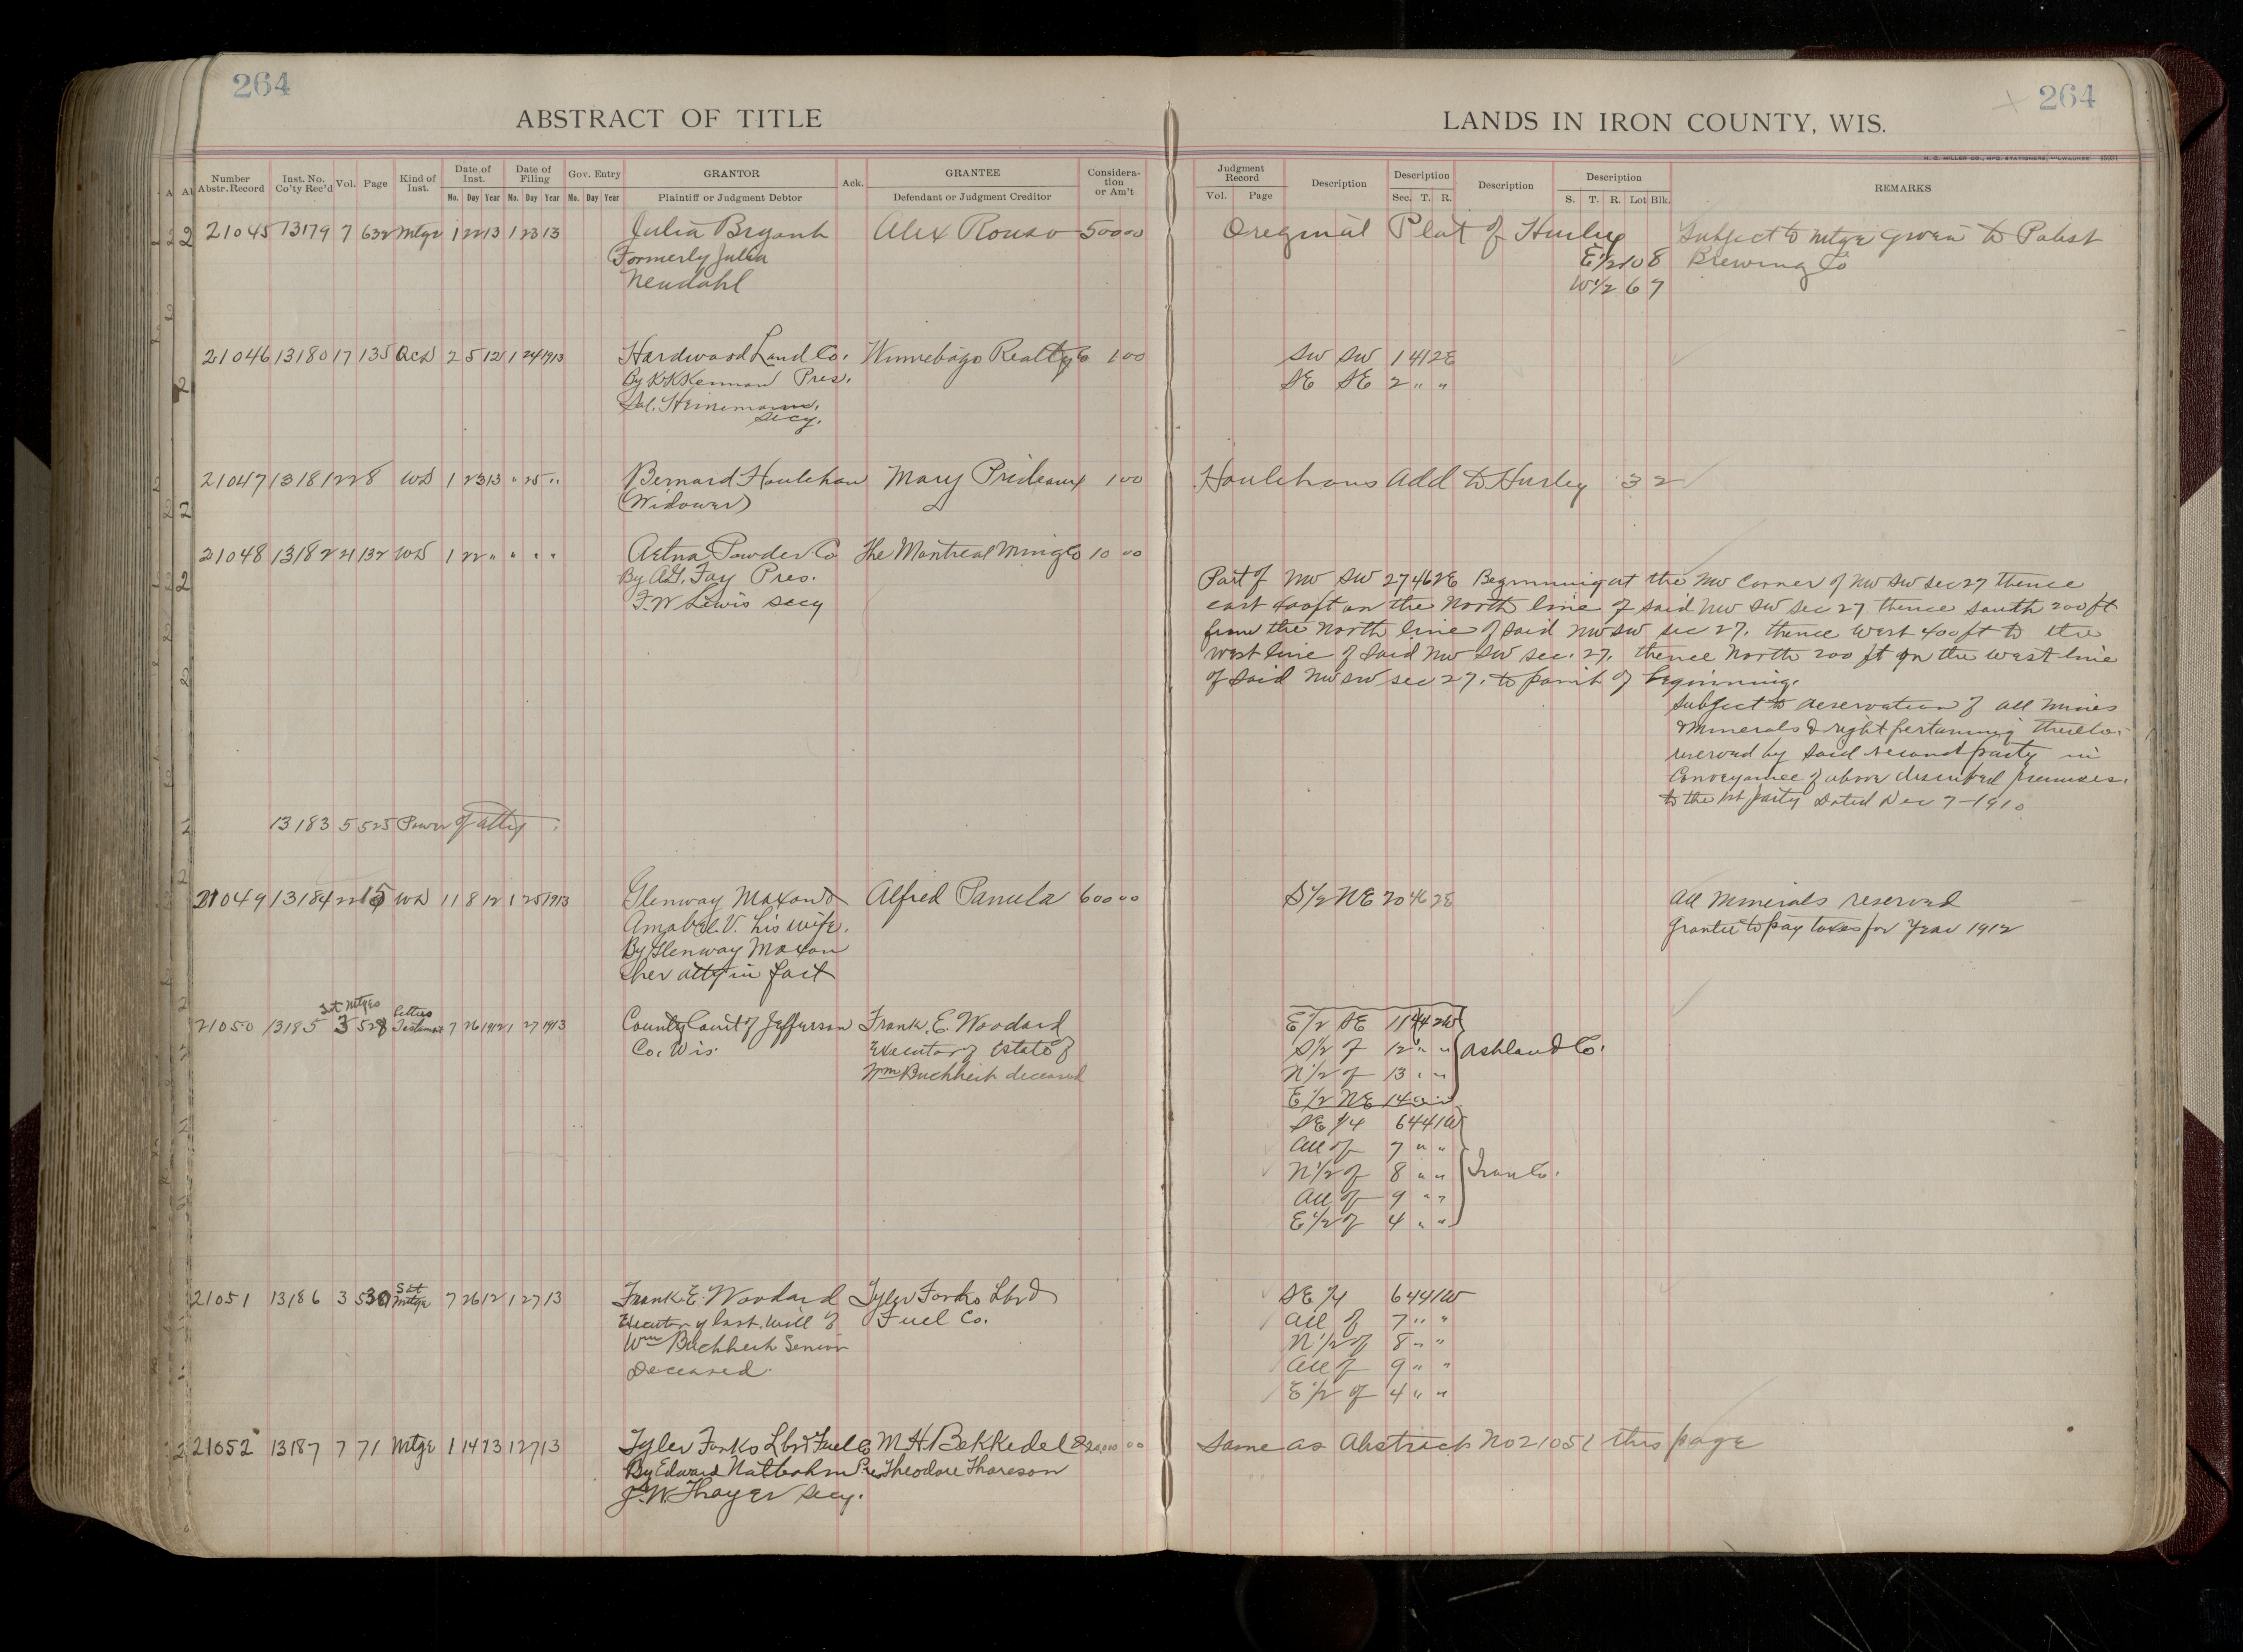 264
264
ABSTRACT OF TITLE
LANDS IN IRON COUNTY, WIS.
H. C. MILLER CO., MFG. STATIONERS, MILWAUKEE
Number Abstr. Record Inst. No. Co'ty Rec'd Vol. Page Kind of Inst. Date of Inst. Mo. Day Year Date of Filing Mo. Day Year Gov. Entry Mo. Day Year GRANTOR Plaintiff or Judgment Debtor Ack. GRANTEE Defendant or Judgment Creditor Considera-tion or Am't
Judgment Record Vol. Page Description Description Sec. T. R. Description Description S. T. R. Lot Blk. REMARKS
21045 13179 7 632 Mtge 1 22 13 1 23 13 Julia Bryant Alex Rouso 500 00 Original Plat of Hurley Subject to mtge given to Pabst
Formerly Julia E 1/2 10 8 Brewing Co
Neudahl W 1/2 6 7
21046 13180 17 135 QCD 2 5 12 1 24 1913 Hardwood Land Co. Winnebago Realty Co 1 00 SW SW 1 41 2E
By K K Kennan Pres. SE SE 2 " "
Sol. Heinemann,
Secy.
21047 13181 22 8 WD 1 23 13 " 25 " Bernard Houlehan Mary Prideaux 1 00 Houlehans Add to Hurley 3 2
(Widower)
21048 13182 21 132 WD 1 22 " " " " Aetna Powder Co The Montreal Ming Co 10 00
By A.G. Fay Pres. Part of NW SW 27 46 2E Beginning at the NW Corner of NW SW Sec 27 thence
F. W Lewis Secy east 400 ft on the North line of said NW SW Sec 27 thence South 200 ft
from the North line of said NW SW sec 27. thence West 400 ft to the
West line of said NW SW sec. 27. thence North 200 ft on the West line
of said NW SW sec 27. to point of beginning.
Subject to reservation of all mines
& minerals & right pertaining thereto.
reserved by said second party in
Conveyance of above described premises.
to the 1st party Dated Dec 7 - 1910
13183 5 525 Power of Atty
21049 13184 22 15 WD 11 8 12 1 25 1913 Glenway Maxon & Alfred Panula 600 00 S 1/2 NE 20 46 2E All Minerals reserved
Amabel. V. his wife. Grantee to pay taxes for Year 1912
By Glenway Maxon
her atty in fact
Sat Mtges Letters
21050 13185 3 528 Testament 7 26 1912 1 27 1913 County Court of Jefferson Frank. E. Woodard E 1/2 SE 11 44 2W
Co. Wis. Executor of Estate of S 1/2 of 12 " " Ashland Co.
Wm Buchheit deceased N 1/2 of 13 " "
E 1/2 NE 14 " "
SE 1/4 6 44 1W
All of 7 " "
N 1/2 of 8 " " Iron Co.
All of 9 " "
E 1/2 of 4 " "
21051 13186 3 530 Sat Mtge 7 26 12 1 27 13 Frank. E. Woodard Tyler Forks Lbr & SE 1/4 6 44 1W
Executor of last. Will of Fuel Co. All of 7 " "
Wm Buchheit Senior N 1/2 of 8 " "
Deceased. All of 9 " "
E 1/2 of 4 " "
21052 13187 7 71 Mtge 1 14 13 1 27 13 Tyler Forks Lbr & Fuel Co M. H. Bekkedel & 20,000 00 Same as Abstrict No 21051 this page
By Edward Pres Theodore Thoreson
J. W. Thayer Secy.